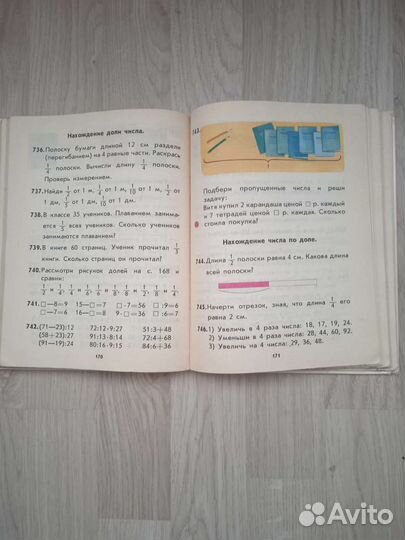 Нахождение доли числа.
736. Полоску бумаги длиной 12 см раздели
(перегибанием) на 4 равные части. Раскрась
1/4 полоски. Вычисли длину 1/4 полоски.
Проверь измерением.
737. Найди 1/2 от 1 м, 1/4 от 1 м, 1/10 от 1 м, 1/2 от
1 дм, 1/5 от 1 дм, 1/10 от 1 дм.
738. В классе 35 учеников. Плаванием занима-
ется 1/5 всех учеников. Сколько учеников
занимаются плаванием?
739. В книге 60 страниц. Ученик прочитал 1/3
книги. Сколько страниц он прочитал?
740. Рассмотри рисунок долей на с. 168 и
сравни:
741. □—8=9 15—□=7 □·7=56 □:9=6
□—7=6 16—□=8 9·□=36 □:6=7
742. (71—23):12 72:12·9:27 51:3+48
(58+23):27 91:13·9:21 72:4+68
(91—19):24 80:16·9:15 84:6+36
170
743.
Подбери пропущенные числа и реши
задачу:
Витя купил 2 карандаша ценой □ р. каждый
и 7 тетрадей ценой □ р. каждая. Сколько
стоила покупка?
Нахождение числа по доле.
744. Длина 1/2 полоски равна 4 см. Какова длина
всей полоски?
745. Начерти отрезок, зная, что длина 1/4 его
равна 2 см.
746. 1) Увеличь в 4 раза числа: 18, 17, 19, 24.
2) Уменьши в 4 раза числа: 28, 44, 60, 92.
3) Увеличь на 4 числа: 29, 36, 48.
171
Avito